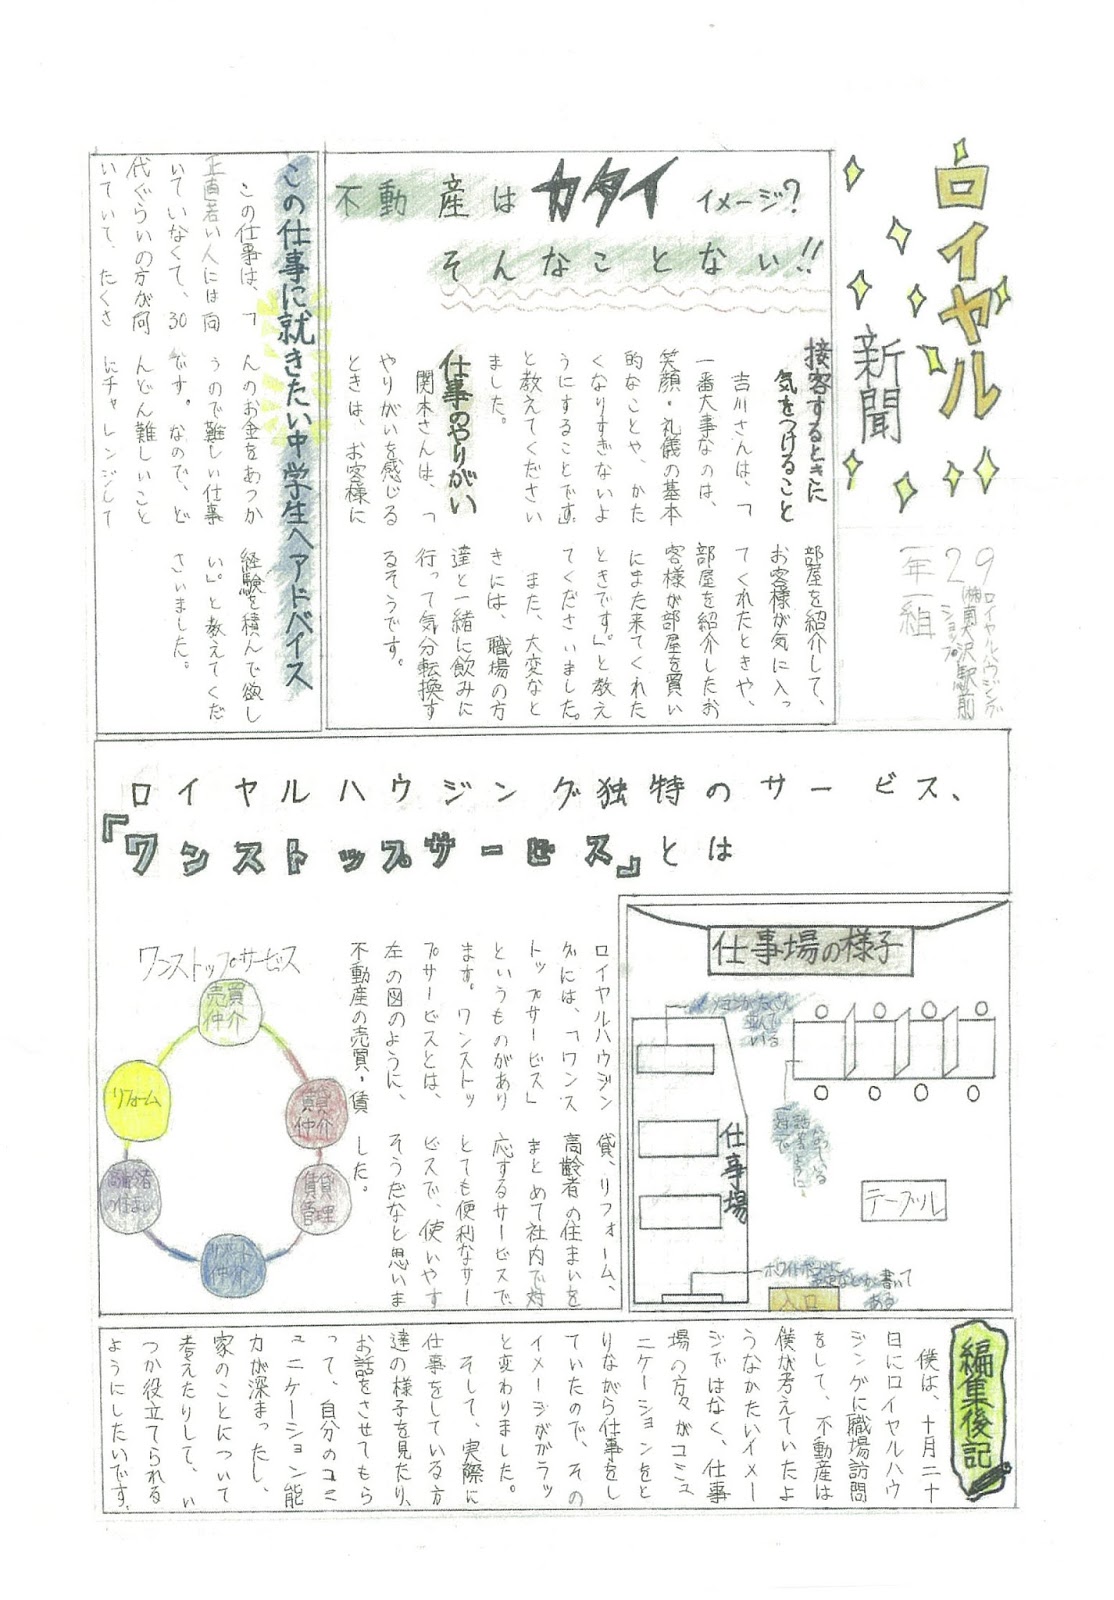 ロイヤル
新聞
ロイヤルハウジング
㈱南大沢駅前
ショップ
一年二組
29
不動産はカタイイメージ?
そんなことない!!
接客するときに
気をつけること
吉川さんは、「
一番大事なのは、
笑顔・礼儀の基本
的なことや、かた
くなりすぎないよ
うにすることです。」
と教えてください
ました。
仕事のやりがい
関本さんは、「
やりがいを感じる
ときは、お客様に
部屋を紹介して、
お客様が気に入っ
てくれたときや、
部屋を紹介したお
客様が部屋を買い
にまた来てくれた
ときです。」と教え
てくださいました。
また、大変なと
きには、職場の方
達と一緒に飲みに
行って気分転換す
るそうです。
この仕事に就きたい中学生へアドバイス
この仕事は、「
正直若い人には向
いていなくて、30
代ぐらいの方が向
いていて、たくさ
んのお金をあつか
うので難しい仕事
です。なので、ど
んどん難しいこと
にチャレンジして
経験を積んで欲し
い」と教えてくだ
さいました。
ロイヤルハウジング独特のサービス、
『ワンストップサービス』とは
ロイヤルハウジン
グには、「ワンス
トップサービス」
というものがあり
ます。ワンストッ
プサービスとは、
左の図のように、
不動産の売買・賃
貸、リフォーム、
高齢者の住まいを
まとめて社内で対
応するサービスで、
とても便利なサー
ビスで、使いやす
そうだなと思いま
した。
ワンストップサービス
売買
仲介
賃貸
仲介
賃貸
管理
仲介
高齢者
の住まい
リフォーム
仕事場の様子
仕事場
テーブル
入口
編集後記
僕は、十月二十
日にロイヤルハウ
ジングに職場訪問
をして、不動産は
僕が考えていたよ
うなかたいイメー
ジではなく、仕事
場の方々がコミュ
ニケーションをと
りながら仕事をし
ていたので、その
イメージがガラッ
と変わりました。
そして、実際に
仕事をしている方
達の様子を見たり、
お話をさせてもら
って、自分のコミ
ュニケーション能
力が深まったし、
家のことについて
考えたりして、い
つか役立てられる
ようにしたいです。